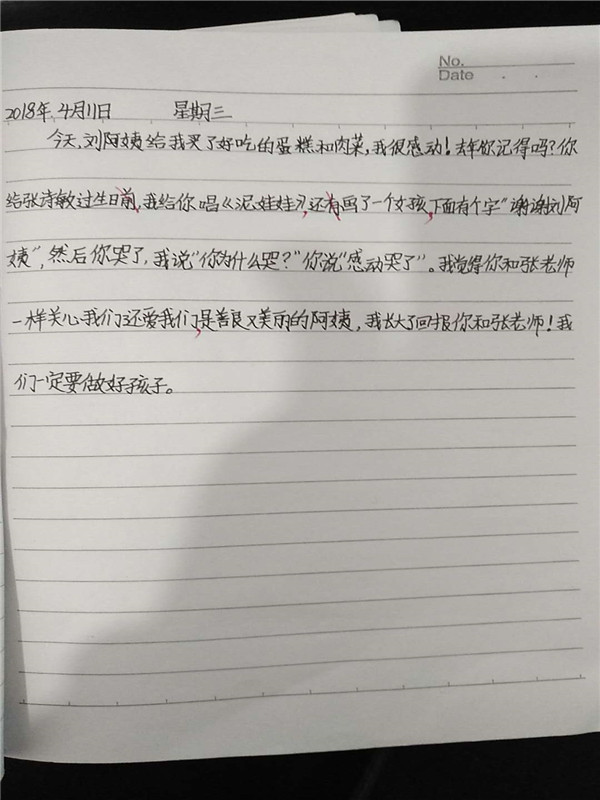 No.
Date . .
2018年4月11日 星期三
今天,刘阿姨给我买了好吃的蛋糕和肉菜,我很感动!去年你记得吗?你
给张诗敏过生日前,我给你唱《泥娃娃》,还有画了一个女孩,下面有个字“谢谢刘阿
姨”,然后你哭了,我说“你为什么哭?”你说“感动哭了”。我觉得你和张老师
一样关心我们还爱我们,是善良又美丽的阿姨,我长大了回报你和张老师!我
们一定要做好孩子。